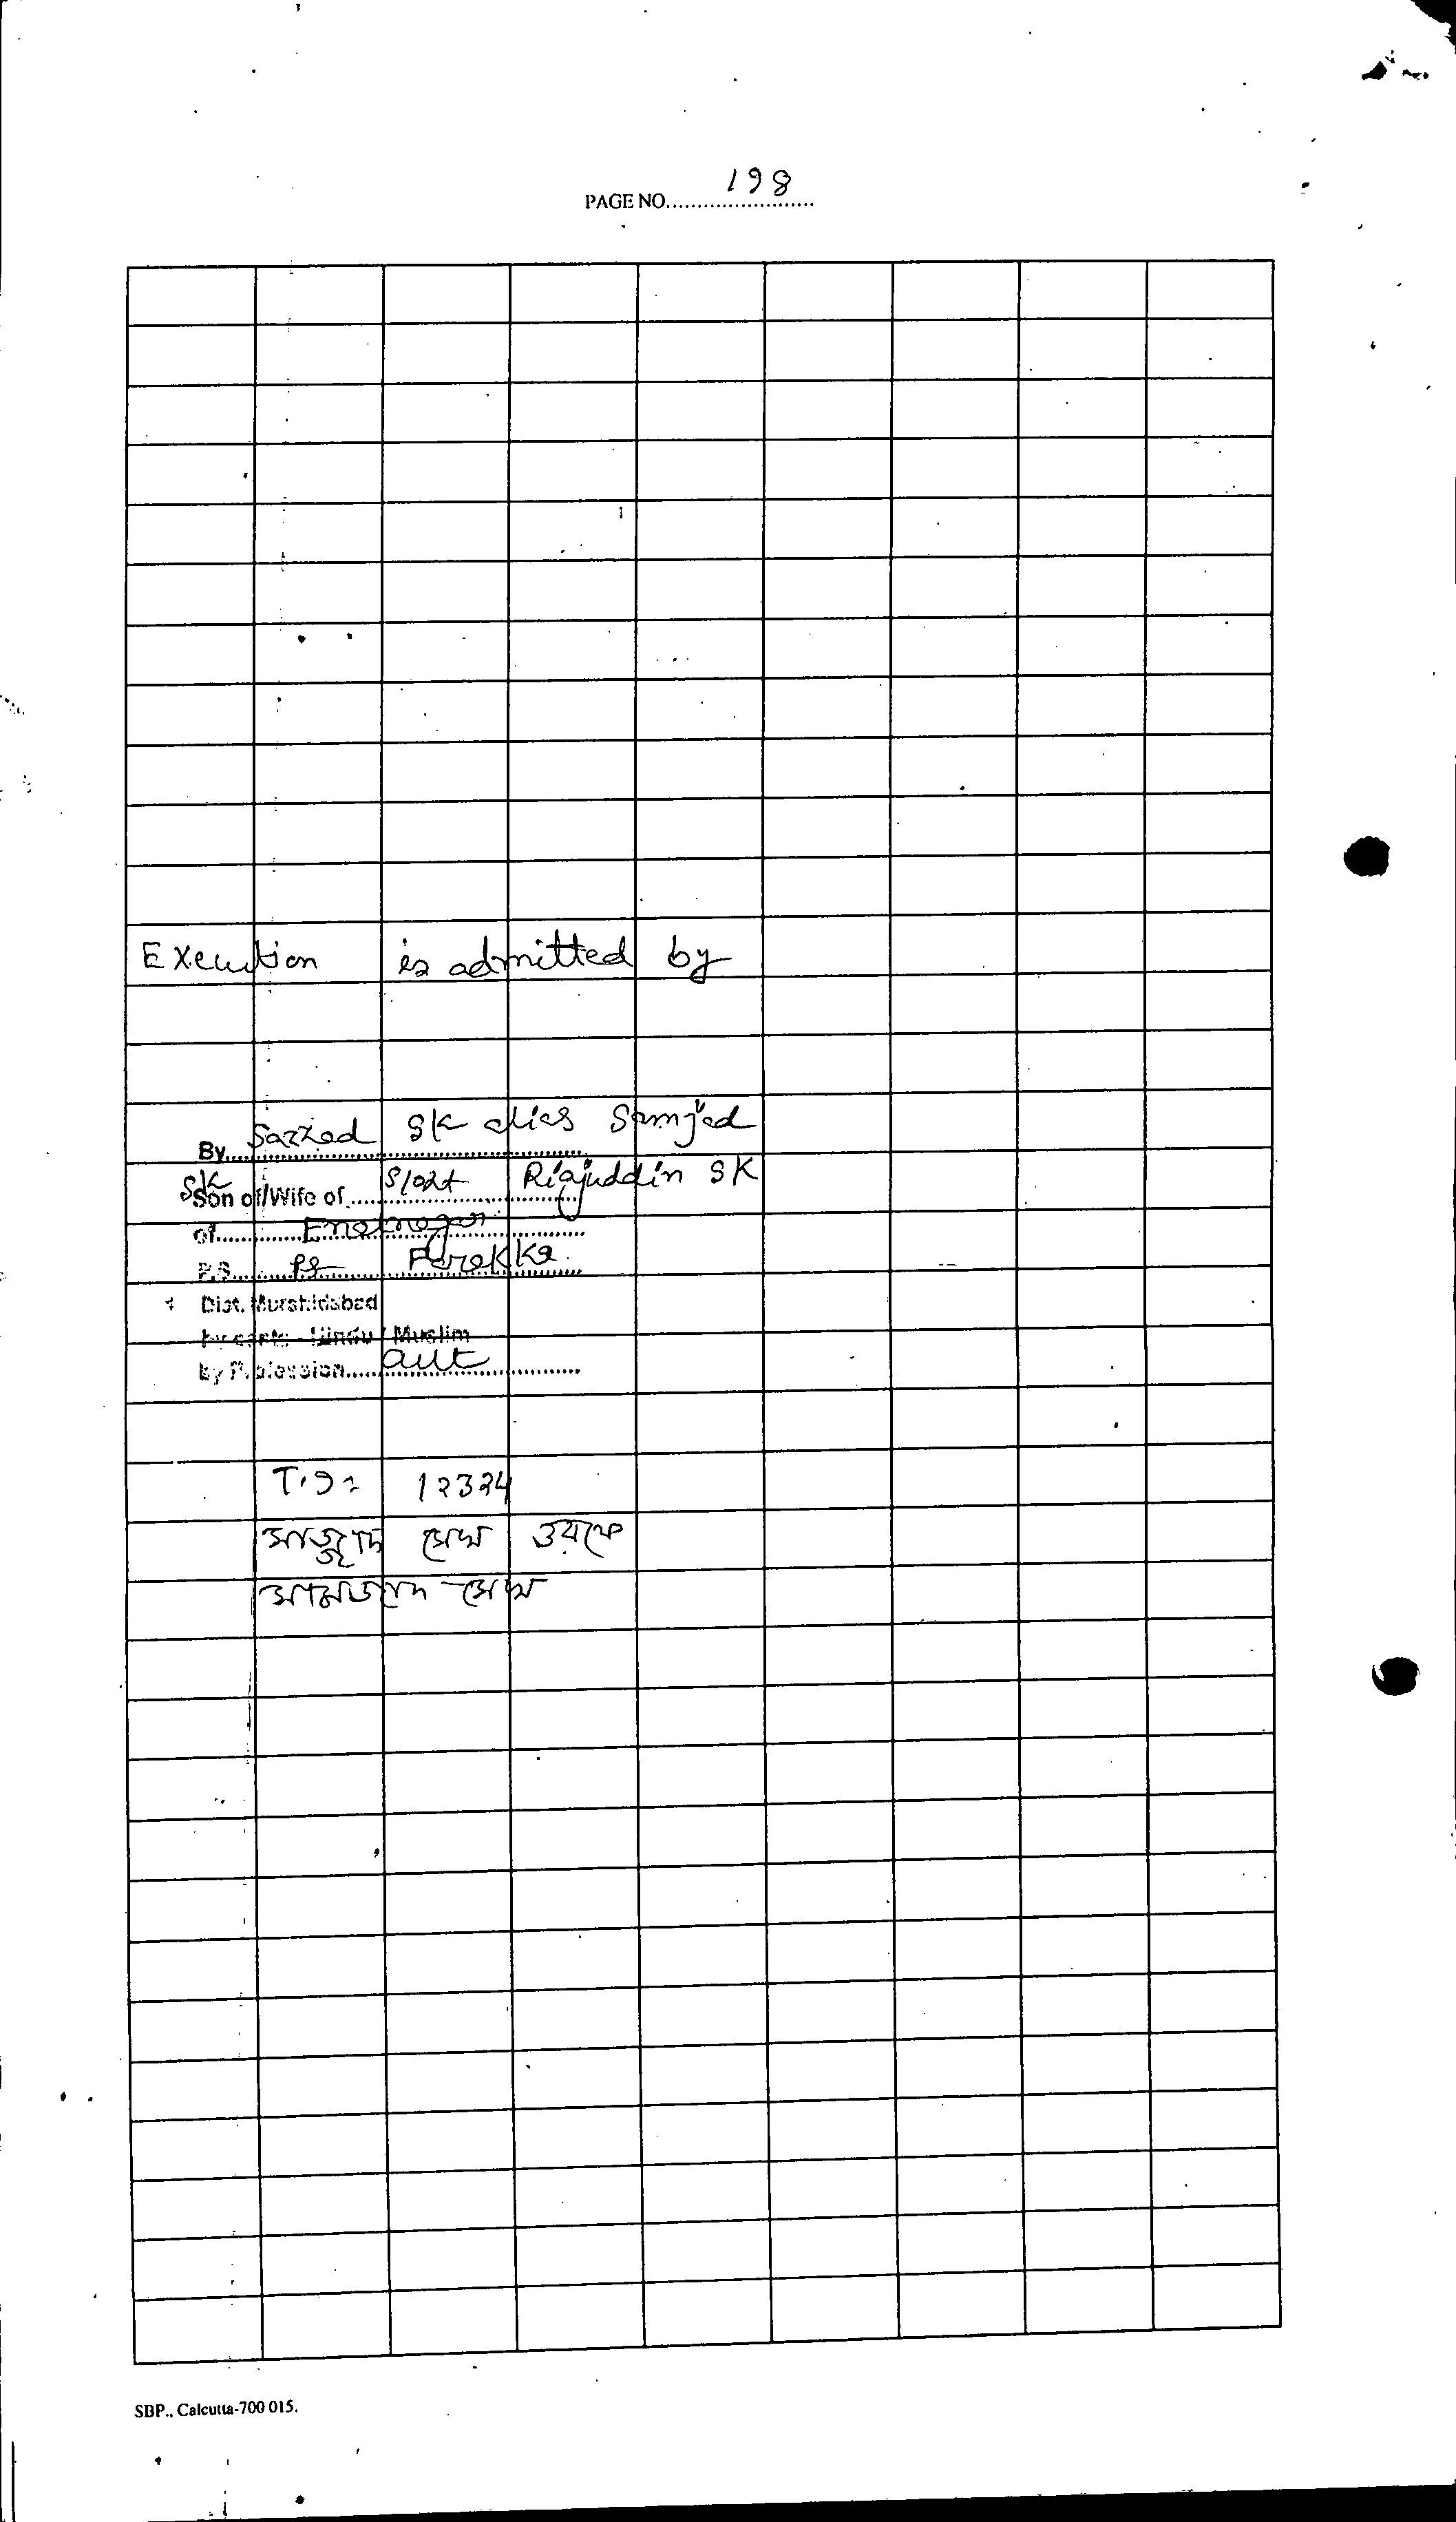 PAGE NO. 198
Execution is admitted by
By Sazzad SK alias Samjad
SK
Son of/Wife of S/o Lt Riajuddin SK
of Enatnagar
P.S. PS Farakka
Dist. Murshidabad
by caste - Hindu / Muslim
by Profession cult
12324
সাজ্জাদ সেখ ওরফে
সামজাদ সেখ
SBP., Calcutta-700 015.